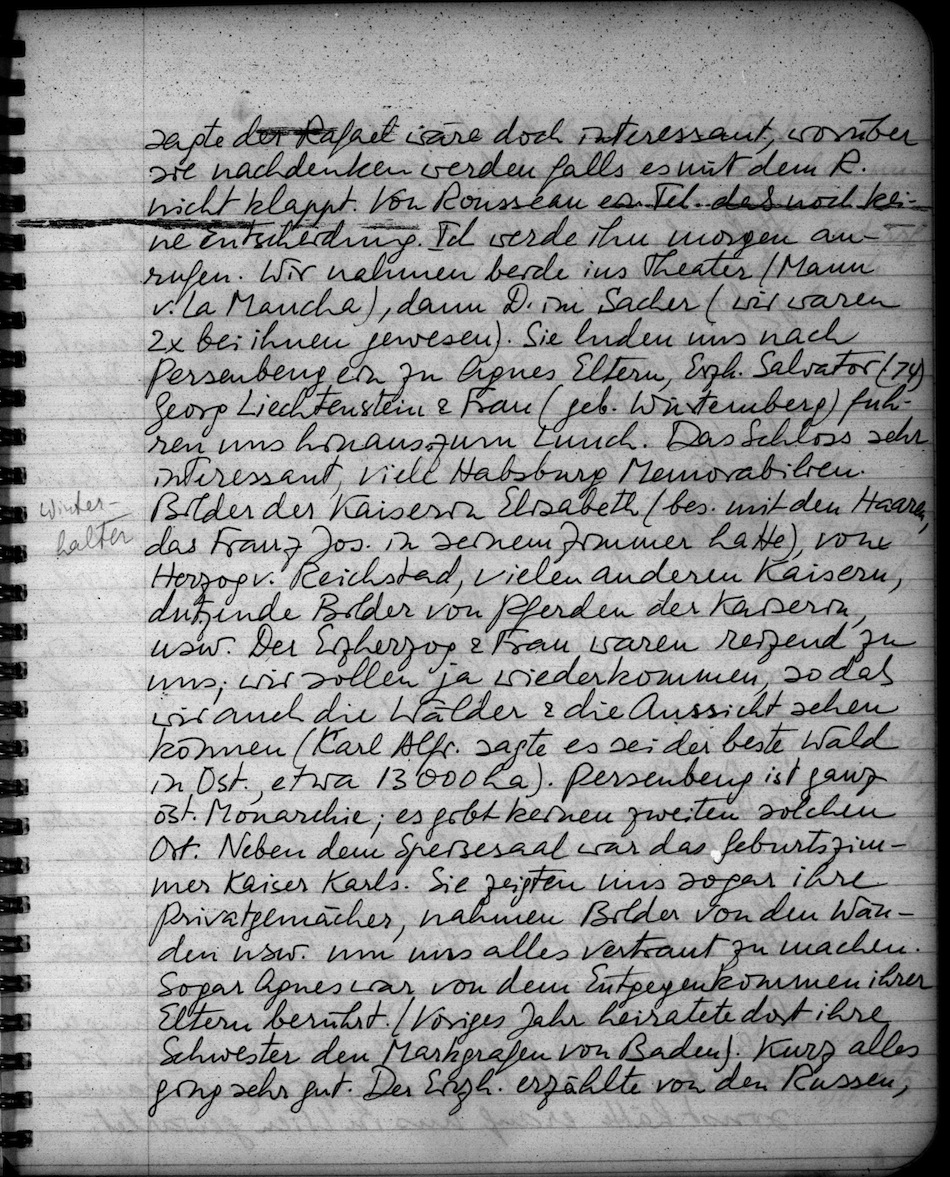 sagte der Rafael wäre doch interessant, worüber
sie nachdenken werden falls es mit dem R.
nicht klappt. Von Rousseau ein Tel. daß noch kei-
ne Entscheidung. Ich werde ihn morgen an-
rufen. Wir nahmen beide ins Theater (Mann
v. La Mancha), dann D. im Sacher (wir waren
2x bei ihnen gewesen). Sie luden uns nach
Persenbeug ein zu Agnes Eltern, Erzh. Salvator (74)
Georg Liechtenstein & Frau (geb. Würtemberg) fuh-
ren uns hinaus, zum Lunch. Das Schloss sehr
interessant, viele Habsburg Memorabilien.
Bilder der Kaiserin Elisabeth (bes. mit den Haaren,
Winter-
halter
das Franz Jos. in seinem Zimmer hatte), vom
Herzog v. Reichstad, vielen anderen Kaisern,
dutzende Bilder von Pferden der Kaiserin,
usw. Der Erzherzog & Frau waren reizend zu
uns; wir sollen ja wiederkommen, so daß
wir auch die Wälder & die Aussicht sehen
können (Karl Alfr. sagte es sei der beste Wald
in Öst., etwa 13000 ha). Persenbeug ist ganz
öst. Monarchie; es gibt keinen zweiten solchen
Ort. Neben dem Speisesaal war das Geburtszim-
mer Kaiser Karls. Sie zeigten uns sogar ihre
Privatgemächer, nahmen Bilder von den Wän-
den usw. um uns alles vertraut zu machen.
Sogar Agnes war von dem Entgegenkommen ihrer
Eltern berührt. (Voriges Jahr heiratete dort ihre
Schwester den Markgrafen von Baden). Kurz alles
ging sehr gut. Der Erzh. erzählte von den Russen,